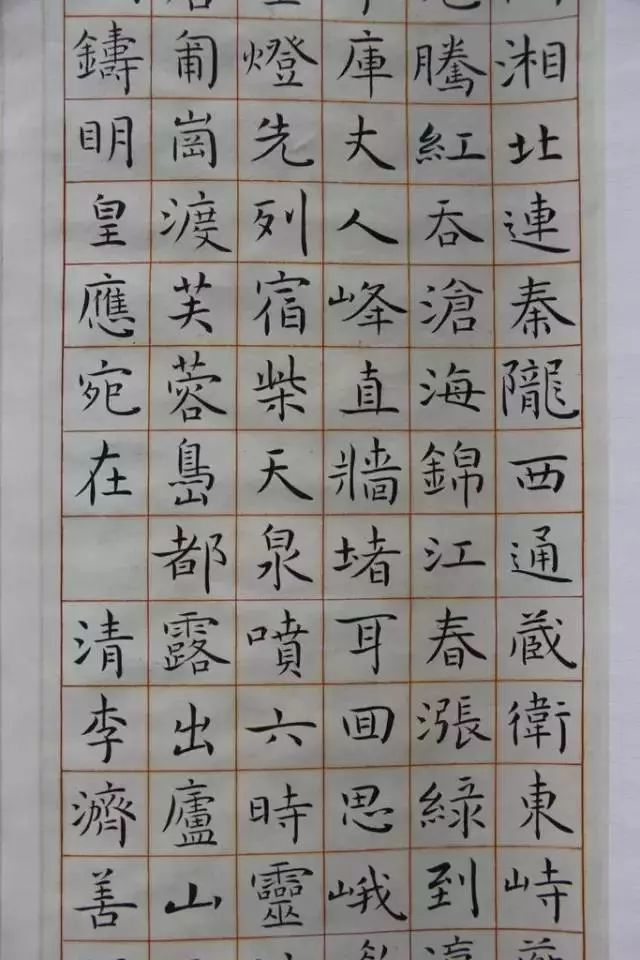 湘北連秦隴西通蔵衛東峙
騰紅吞滄海錦江春漲緑到
庫丈人峰直牆堵耳囬思峨
燈先列宿柴天泉噴六時靈
匍崗渡芙蓉島都露出廬山
鑄明皇應宛在 清李濟善